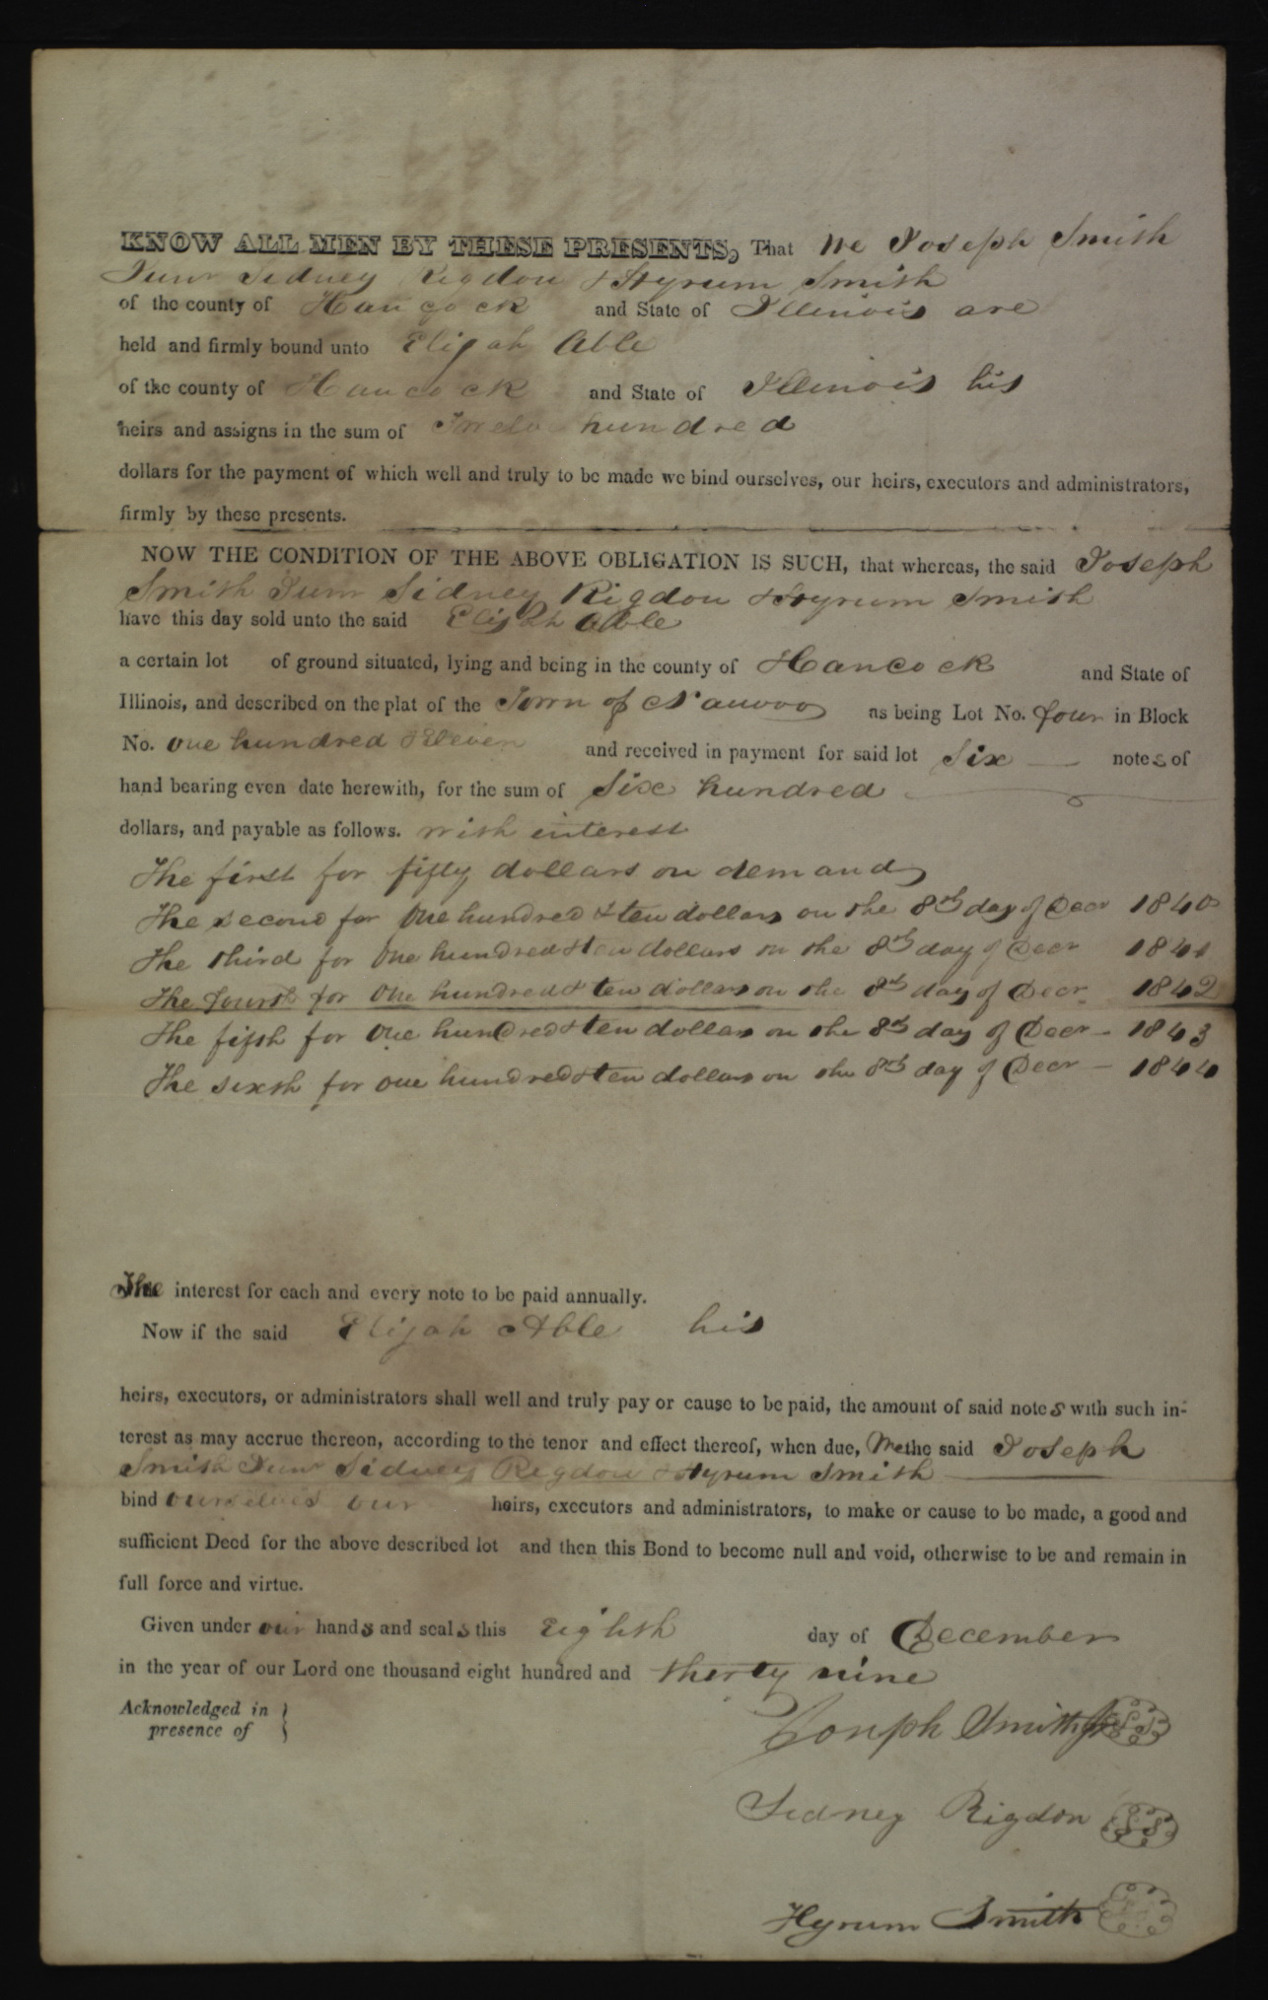 KNOW ALL MEN BY THESE PRESENTS, That We Joseph Smith
Junr Sidney Rigdon & Hyrum Smith
of the county of Hancock and State of Illinois are
held and firmly bound unto Elijah Able
of the county of Hancock and State of Illinois his
heirs and assigns in the sum of Twelv hundred
dollars for the payment of which well and truly to be made we bind ourselves, our heirs, executors and administrators,
firmly by these presents.
NOW THE CONDITION OF THE ABOVE OBLIGATION IS SUCH, that whereas, the said Joseph
Smith Junr Sidney Rigdon & Hyrum Smith
have this day sold unto the said Elijah Able
a certain lot of ground situated, lying and being in the county of Hancock and State of
Illinois, and described on the plat of the Town of Nauvoo as being Lot No. four in Block
No. one hundred & Eleven and received in payment for said lot Six — notes of
hand bearing even date herewith, for the sum of Six hundred
dollars, and payable as follows. with interest
The first for fifty dollars on demand
The second for One hundred & ten dollars on the 8th day of Decr 1840
The third for One hundred & ten dollars on the 8th day of Decr 1841
The fourth for One hundred & ten dollars on the 8th day of Decr 1842
The fifth for One hundred & ten dollars on the 8th day of Decr - 1843
The sixth for one hundred & ten dollars on the 8th day of Decr — 1844
The interest for each and every note to be paid annually.
Now if the said Elijah Able his
heirs, executors, or administrators shall well and truly pay or cause to be paid, the amount of said notes with such in-
terest as may accrue thereon, according to the tenor and effect thereof, when due, We the said Joseph
Smith Junr Sidney Rigdon & Hyrum Smith
bind ourselves our heirs, executors and administrators, to make or cause to be made, a good and
sufficient Deed for the above described lot and then this Bond to become null and void, otherwise to be and remain in
full force and virtue.
Given under our hands and seals this Eighth day of December
in the year of our Lord one thousand eight hundred and thirty nine
Acknowledged in }
presence of }
Joseph Smith Jr LS
Sidney Rigdon LS
Hyrum Smith